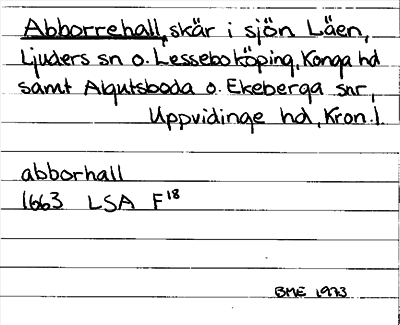 Abborrehall, skär i sjön Läen,
Ljuders sn o. Lessebo köping, Konga hd
samt Algutsboda o. Ekeberga snr,
Uppvidinge hd, Kron. l.
abborhall
1663 LSA F18
BME 1973